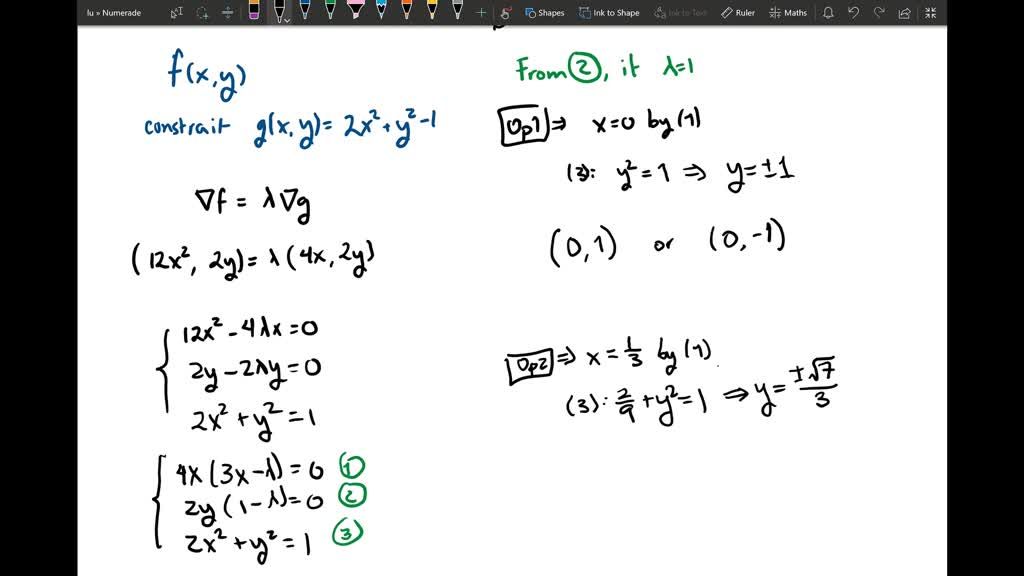 lu » Numerade
Shapes
Ink to Shape
Ink to Text
Ruler
Maths
f(x,y)
constrait g(x,y)= 2x²+y²-1
∇f = λ∇g
(12x², 2y)= λ(4x,2y)
12x²-4λx=0
2y-2λy=0
2x²+y²=1
4x(3x-λ)=0 ①
2y(1-λ)=0 ②
2x²+y²=1 ③
From ②, if λ=1
Op1 ⇒ x=0 by (1)
(3): y²=1 ⇒ y=±1
(0,1) or (0,-1)
Op2 ⇒ x=1/3 by (1)
(3): 2/9+y²=1 ⇒ y=±√7/3